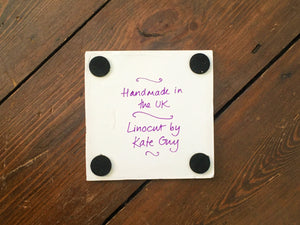 Handmade in
the UK
Linocut by
Kate Guy